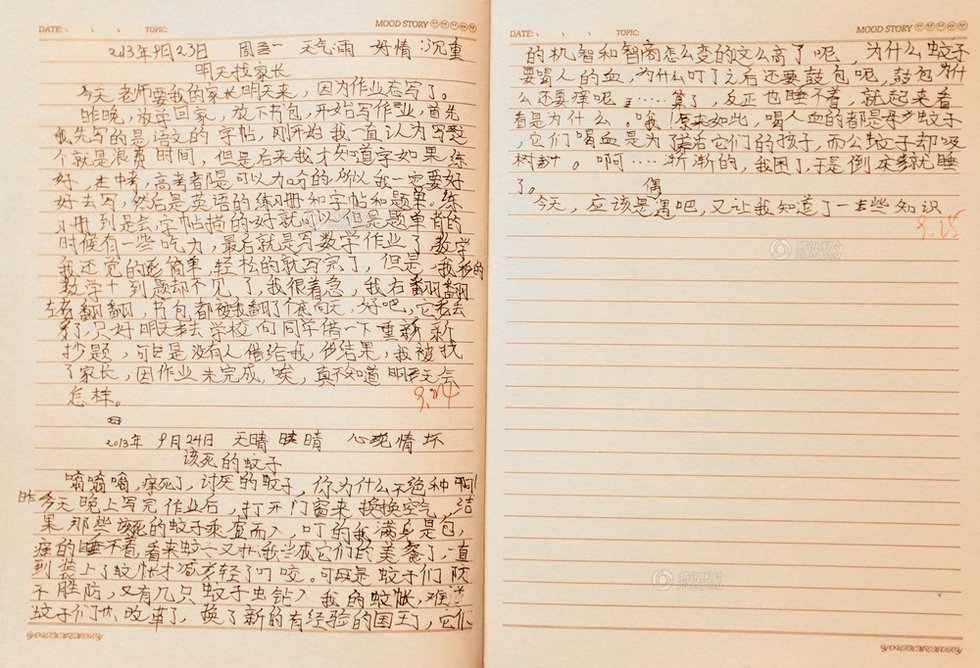 DATE: TOPIC: MOOD STORY
2013年9月23日 周一 天气雨 好情:沉重
明天拉家长
今天,老师要我的家长明天来,因为作业忘写了。
昨晚,放学回家,放下书包,开始写作业,首先
我先写的是语文的字帖,刚开始我一直认为写这
个就是浪费时间,但是后来我才知道字如果练
好,在中考,高考都是可以加分的所以我一定要好
好去写,然后是英语的练习册和字帖和题单,练
习册到是会,字帖描的好就可以但是题单背的
时候有一些吃力,最后就是写数学作业了,数学
我还觉的形简单,轻松的就写完了,但是,我抄的
数学十到题却不见了,我很着急,我右翻翻
左翻翻,书包都被我翻了个底向天,好吧,它丢
了,只好明天去学校向同学借一下重新
抄题,可是没有人借给我,结果,我被找
了家长,因作业未完成,唉,真不知道明天天气
怎样。
9.24
2013年 9月24日 天晴 晴 心情坏
该死的蚊子
嗡嗡嗡,痒死了,讨厌的蚊子,你为什么不绝种啊!
昨天晚上写完作业后,打开门窗来换换空气,结
果那些该死的蚊子乘虚而入,叮的我满身是包,
痒的睡不着,看来蚊子又把我当成它们的美餐了,一直
到装上了蚊帐才减轻了叮咬。可是蚊子们防
不胜防,又有几只蚊子钻入我的蚊帐,难道
蚊子们也改革了,换了新的有经验的国王了,它们
YOUTH MEMORY
DATE: TOPIC: MOOD STORY
的机智和智商怎么变的这么高了呢,为什么蚊子
要喝人的血,为什么叮了之后还要鼓包呢,鼓包为什
么还要痒呢……算了,反正也睡不着,就起来看
看是为什么。哦!原来如此,喝人血的都是母蚊子
,它们喝血是为了养活它们的孩子,而公蚊子却吸
树汁。啊……渐渐的,我困了,于是倒床就睡
了。
今天,应该是偶吧,又让我知道了一些知识
9.25
腾讯图片
腾讯图片
YOUTH MEMORY